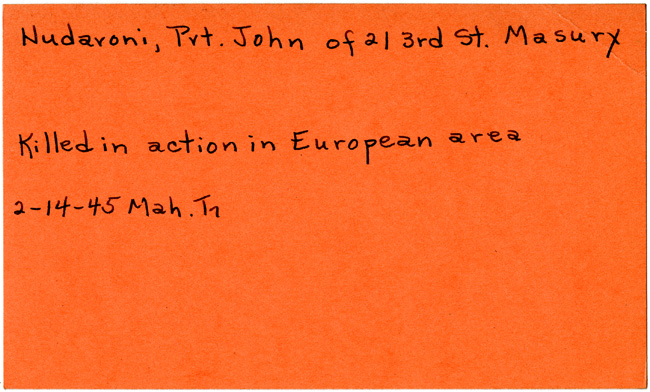 Nudaroni, Pvt. John of 21 3rd St. Masury
Killed in action in European area
2-14-45 Mah. Tr